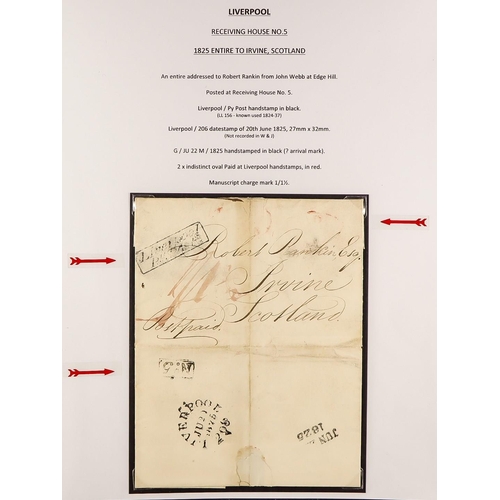 LIVERPOOL
RECEIVING HOUSE NO.5
1825 ENTIRE TO IRVINE, SCOTLAND
An entire addressed to Robert Rankin from John Webb at Edge Hill.
Posted at Receiving House No. 5.
Liverpool / Py Post handstamp in black.
(LL 156 - known used 1824-37)
Liverpool / 206 datestamp of 20th June 1825, 27mm x 32mm.
(Not recorded in W & J)
G / JU 22 M / 1825 handstamped in black (? arrival mark).
2 x indistinct oval Paid at Liverpool handstamps, in red.
Manuscript charge mark 1/1½.
Robert Rankin Esq
Irvine
Scotland.
Post paid.
LIVERPOOL
206
JUN
1825